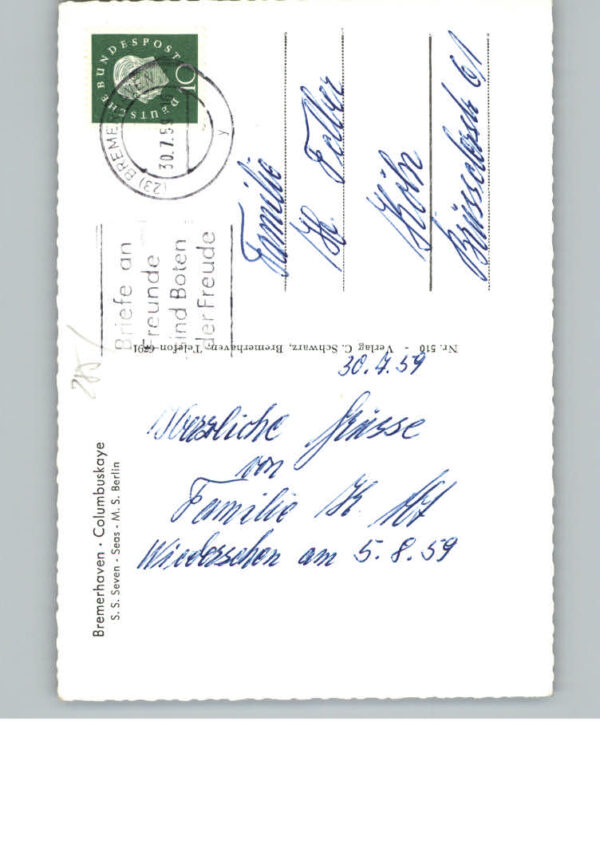 Bremerhaven · Columbuskaye
S. S. Seven - Seas - M. S. Berlin
30.7.59
Herzliche Grüsse
von
Familie K.
Wiedersehen am 5.8.59
Nr. 510 - Verlag C. Schwarz, Bremerhaven, Telefon 6791
DEUTSCHE BUNDESPOST
10
(23) BREMERHAVEN
30.7.59
y
Briefe an
Freunde
sind Boten
der Freude
Familie
Köln
61